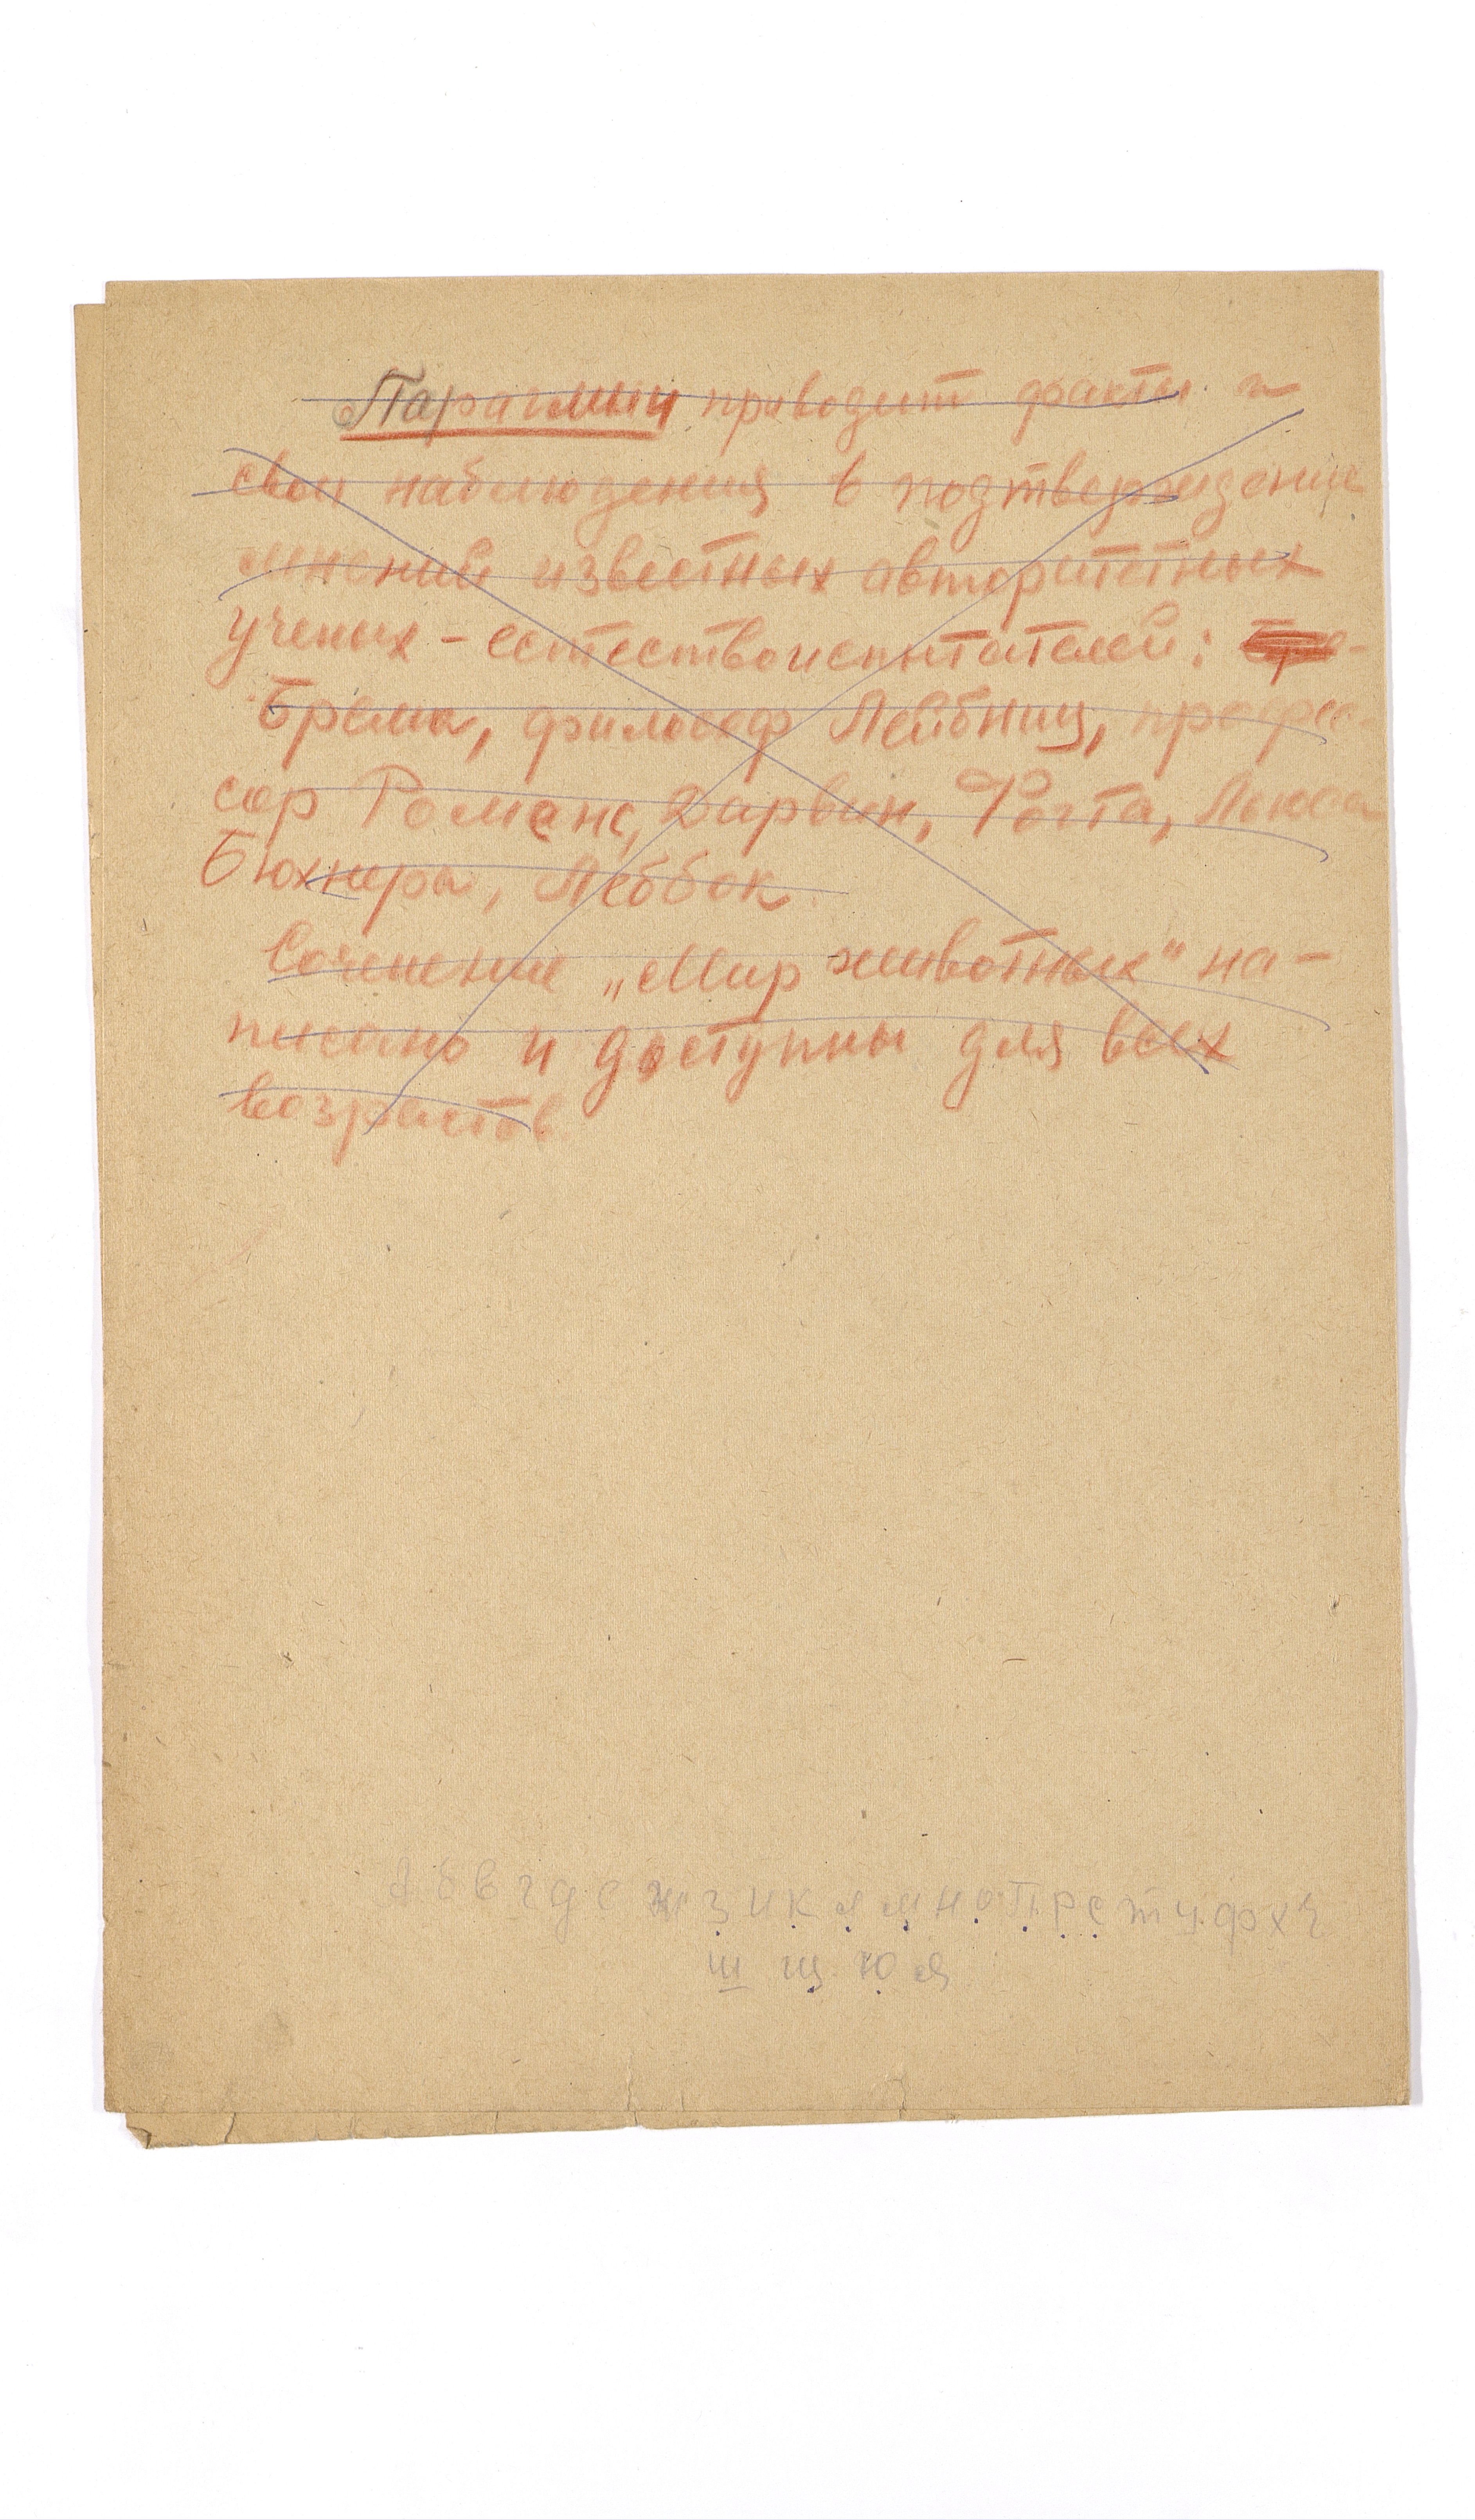 приводит факты и
свои наблюдения в подтверждение
мнений известных авторитетных
ученых - естествоиспытателей:
Брема, философ Лейбниц, профес-
сор Романс, Дарвин, Фогта,
Бюхнера, Леббок.
Сочинение „Мир животных" на-
писано и доступны для всех
возрастов
а б в г д е ж з и к л м н о п р с т у ф х ч
ш щ ю я